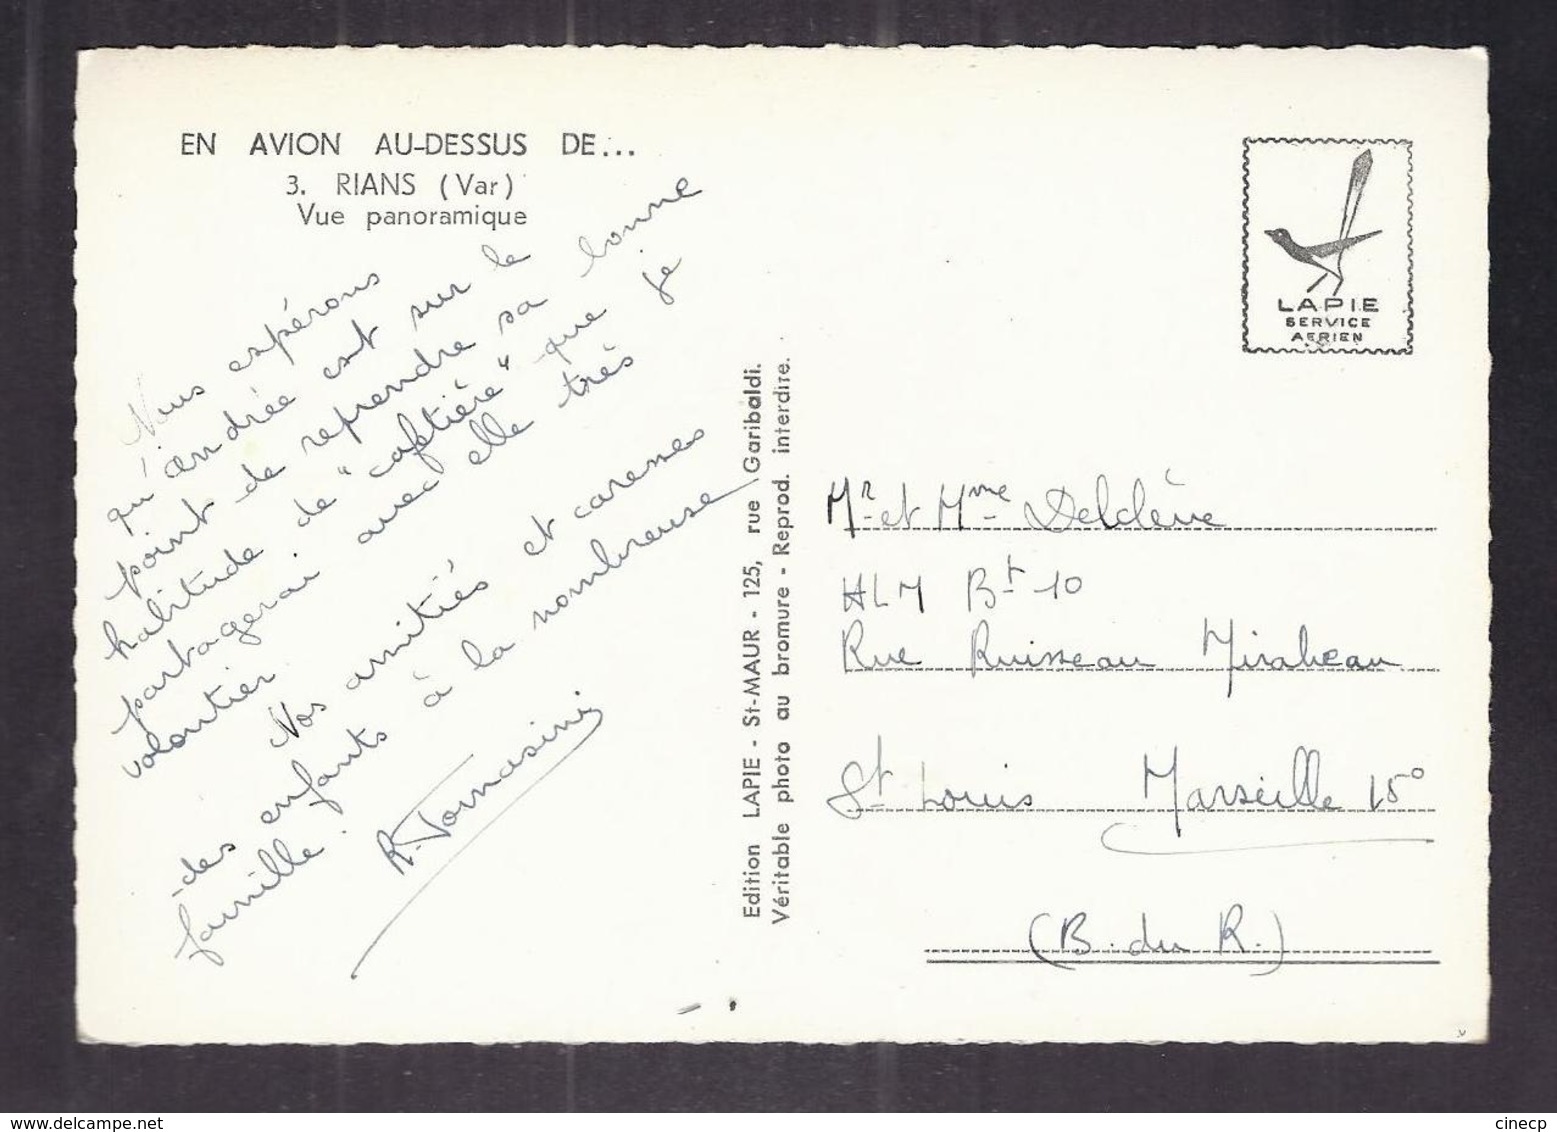 EN AVION AU-DESSUS DE...
3. RIANS (Var)
Vue panoramique
Nous espérons
qu'andrée est sur le
point de reprendre sa bonne
habitude de "caftière" que je
partagerai avec elle très
volontier.
Nos amitiés et caresses
des enfants à la nombreuse
famille.
R. Tomasini
Edition LAPIE - St-MAUR - 125, rue Garibaldi.
Véritable photo au bromure - Reprod. interdite.
LAPIE
SERVICE
AERIEN
Mr et Mme Deldève
HLM Bt 10
Rue Ruisseau Mirabeau
St Louis Marseille 15°
(B. du R.)
cinecp